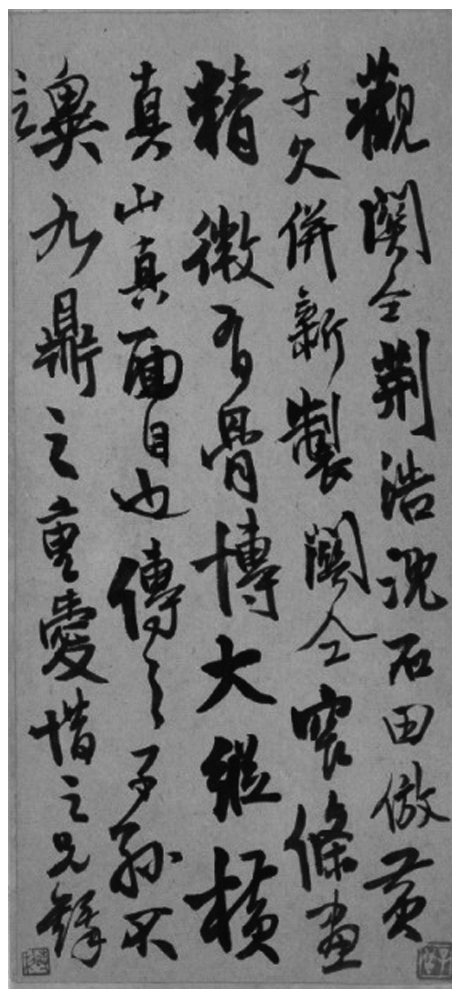 觀關仝荊浩沈石田倣黃
子久併新製關仝窄條畫
精微有骨博大縱橫
真山真面目也傳之子孫不
異九鼎之重愛惜之兄鐸